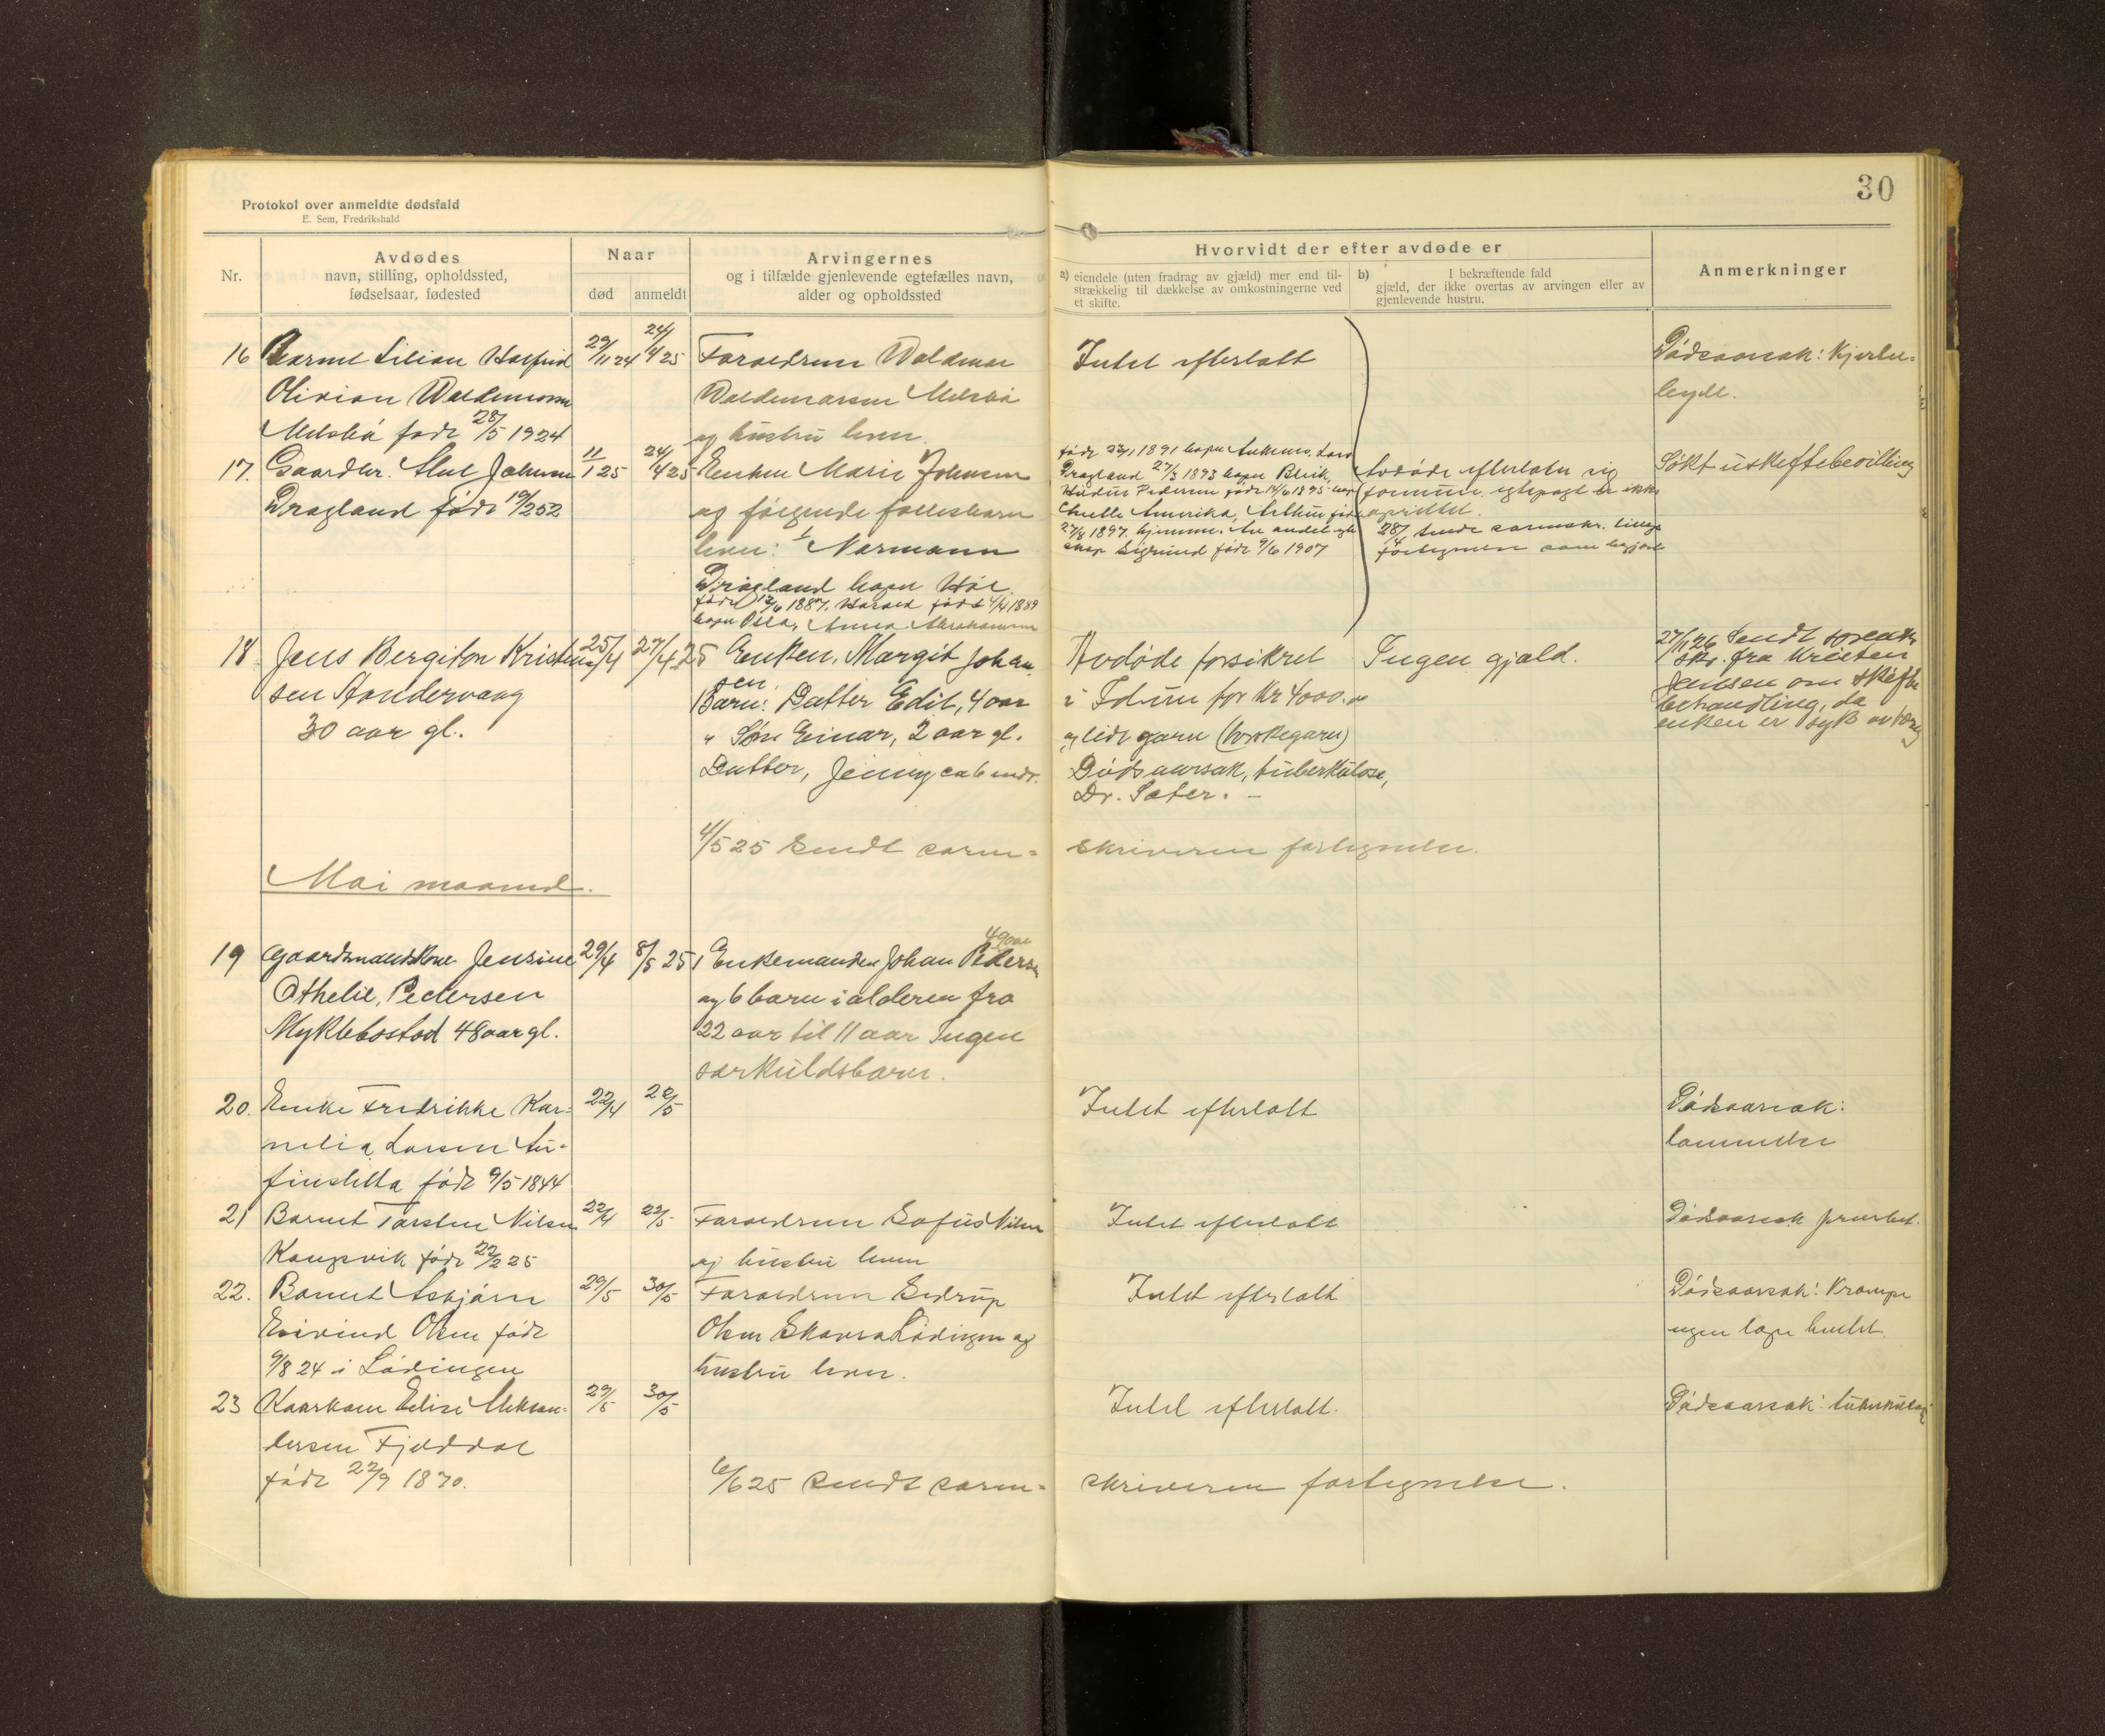 30
Protokol over anmeldte dødsfald
E. Sem, Fredrikshald
Nr.
Avdødes
navn, stilling, opholdssted,
fødselsaar, fødested
Naar
død
anmeldt
Arvingernes
og i tilfælde gjenlevende egtefælles navn,
alder og opholdssted
Hvorvidt der efter avdøde er
a) eiendele (uten fradrag av gjæld) mer end til-
strækkelig til dækkelse av omkostningerne ved
et skifte.
b) I bekræftende fald
gjæld, der ikke overtas av arvingen eller av
gjenlevende hustru.
Anmerkninger
16 Barnet Lilian Halfrid
Olivian Waldemarsen
født 28/5 1924
29/11 24
24/4 25
Foraeldrene Waldemar
Waldemarsen
og hustru lever.
Intet efterlatt
Dødsaarsak:
17. Gaardbr. Johnsen
Dragland født 19/2 52
11/1 25
24/4 25
Enken Marie Johnsen
og følgende fællesbarn
lever: 1/ Normann
Dragland bopæl
født 12/6 1887. Harald født 4/4 1889
bopæl Anna Abrahamsen
født 23/1 1891 bopæl
Dragland 27/3 1893 bopæl
Pedersen født 14/6 1895
Amerika, Arthur født
27/8 1897. hjemme. Av andet
Sigmund født 9/6 1907
Avdøde efterlater sig
formue, egtepagt er ikke
oprettet.
28/4 sendt sorenskr.
fortegnelse som
Søkt uskiftebevilling
18 Jens Bergiton Kristian-
sen Sandervaag
30 aar gl.
25/4
27/4 25
Enken, Margit Johan
sen
Barn: Datter Edit, 4 aar
" Søn Einar, 2 aar gl.
Datter, Jenny ca 6 mdr.
Avdøde forsikret
i Idun for Kr 4000.00
og lidt garn (torskegarn)
Dødsaarsak, tuberkulose,
Dr. Sæter. –
Ingen gjæld.
27/11 26 Sendt sorensk
skr. fra
Jensen om skifte
behandling, da
enken er syk av
4/5 25 sendt soren=
skriveren fortegnelse.
Mai maaned.
19 Gaardmandskone Jensine
Othelie, Pedersen
Myklebostad 48 aar gl.
29/4
8/5 25
Enkemanden Johan Pedersen
49 aar
og 6 barn i alderen fra
22 aar til 11 aar Ingen
særkuldsbarn.
20. Enke Fredrikke Kor=
nelia Larsen
født 9/5 1844
22/4
22/5
Intet efterlatt
Dødsaarsak:
lammelse
21 Barnet Torsten Nilsen
Kongsvik født 22/2 25
22/4
22/5
Foraeldrene Sofus Nilsen
og hustru lever
Intet efterlatt
Dødsaarsak
22. Barnet Asbjørn
Eivind Olsen født
9/8 24 i Lødingen
29/5
30/5
Foraeldrene Sedrup
Olsen Lødingen og
hustru lever.
Intet efterlatt
Dødsaarsak: Krampe
ingen læge
23 Elise Aleksan=
dersen Fjelddal
født 22/9 1870.
29/5
30/5
Intet efterlatt.
Dødsaarsak: tuberkulose
6/6 25 sendt soren=
skriveren fortegnelse.